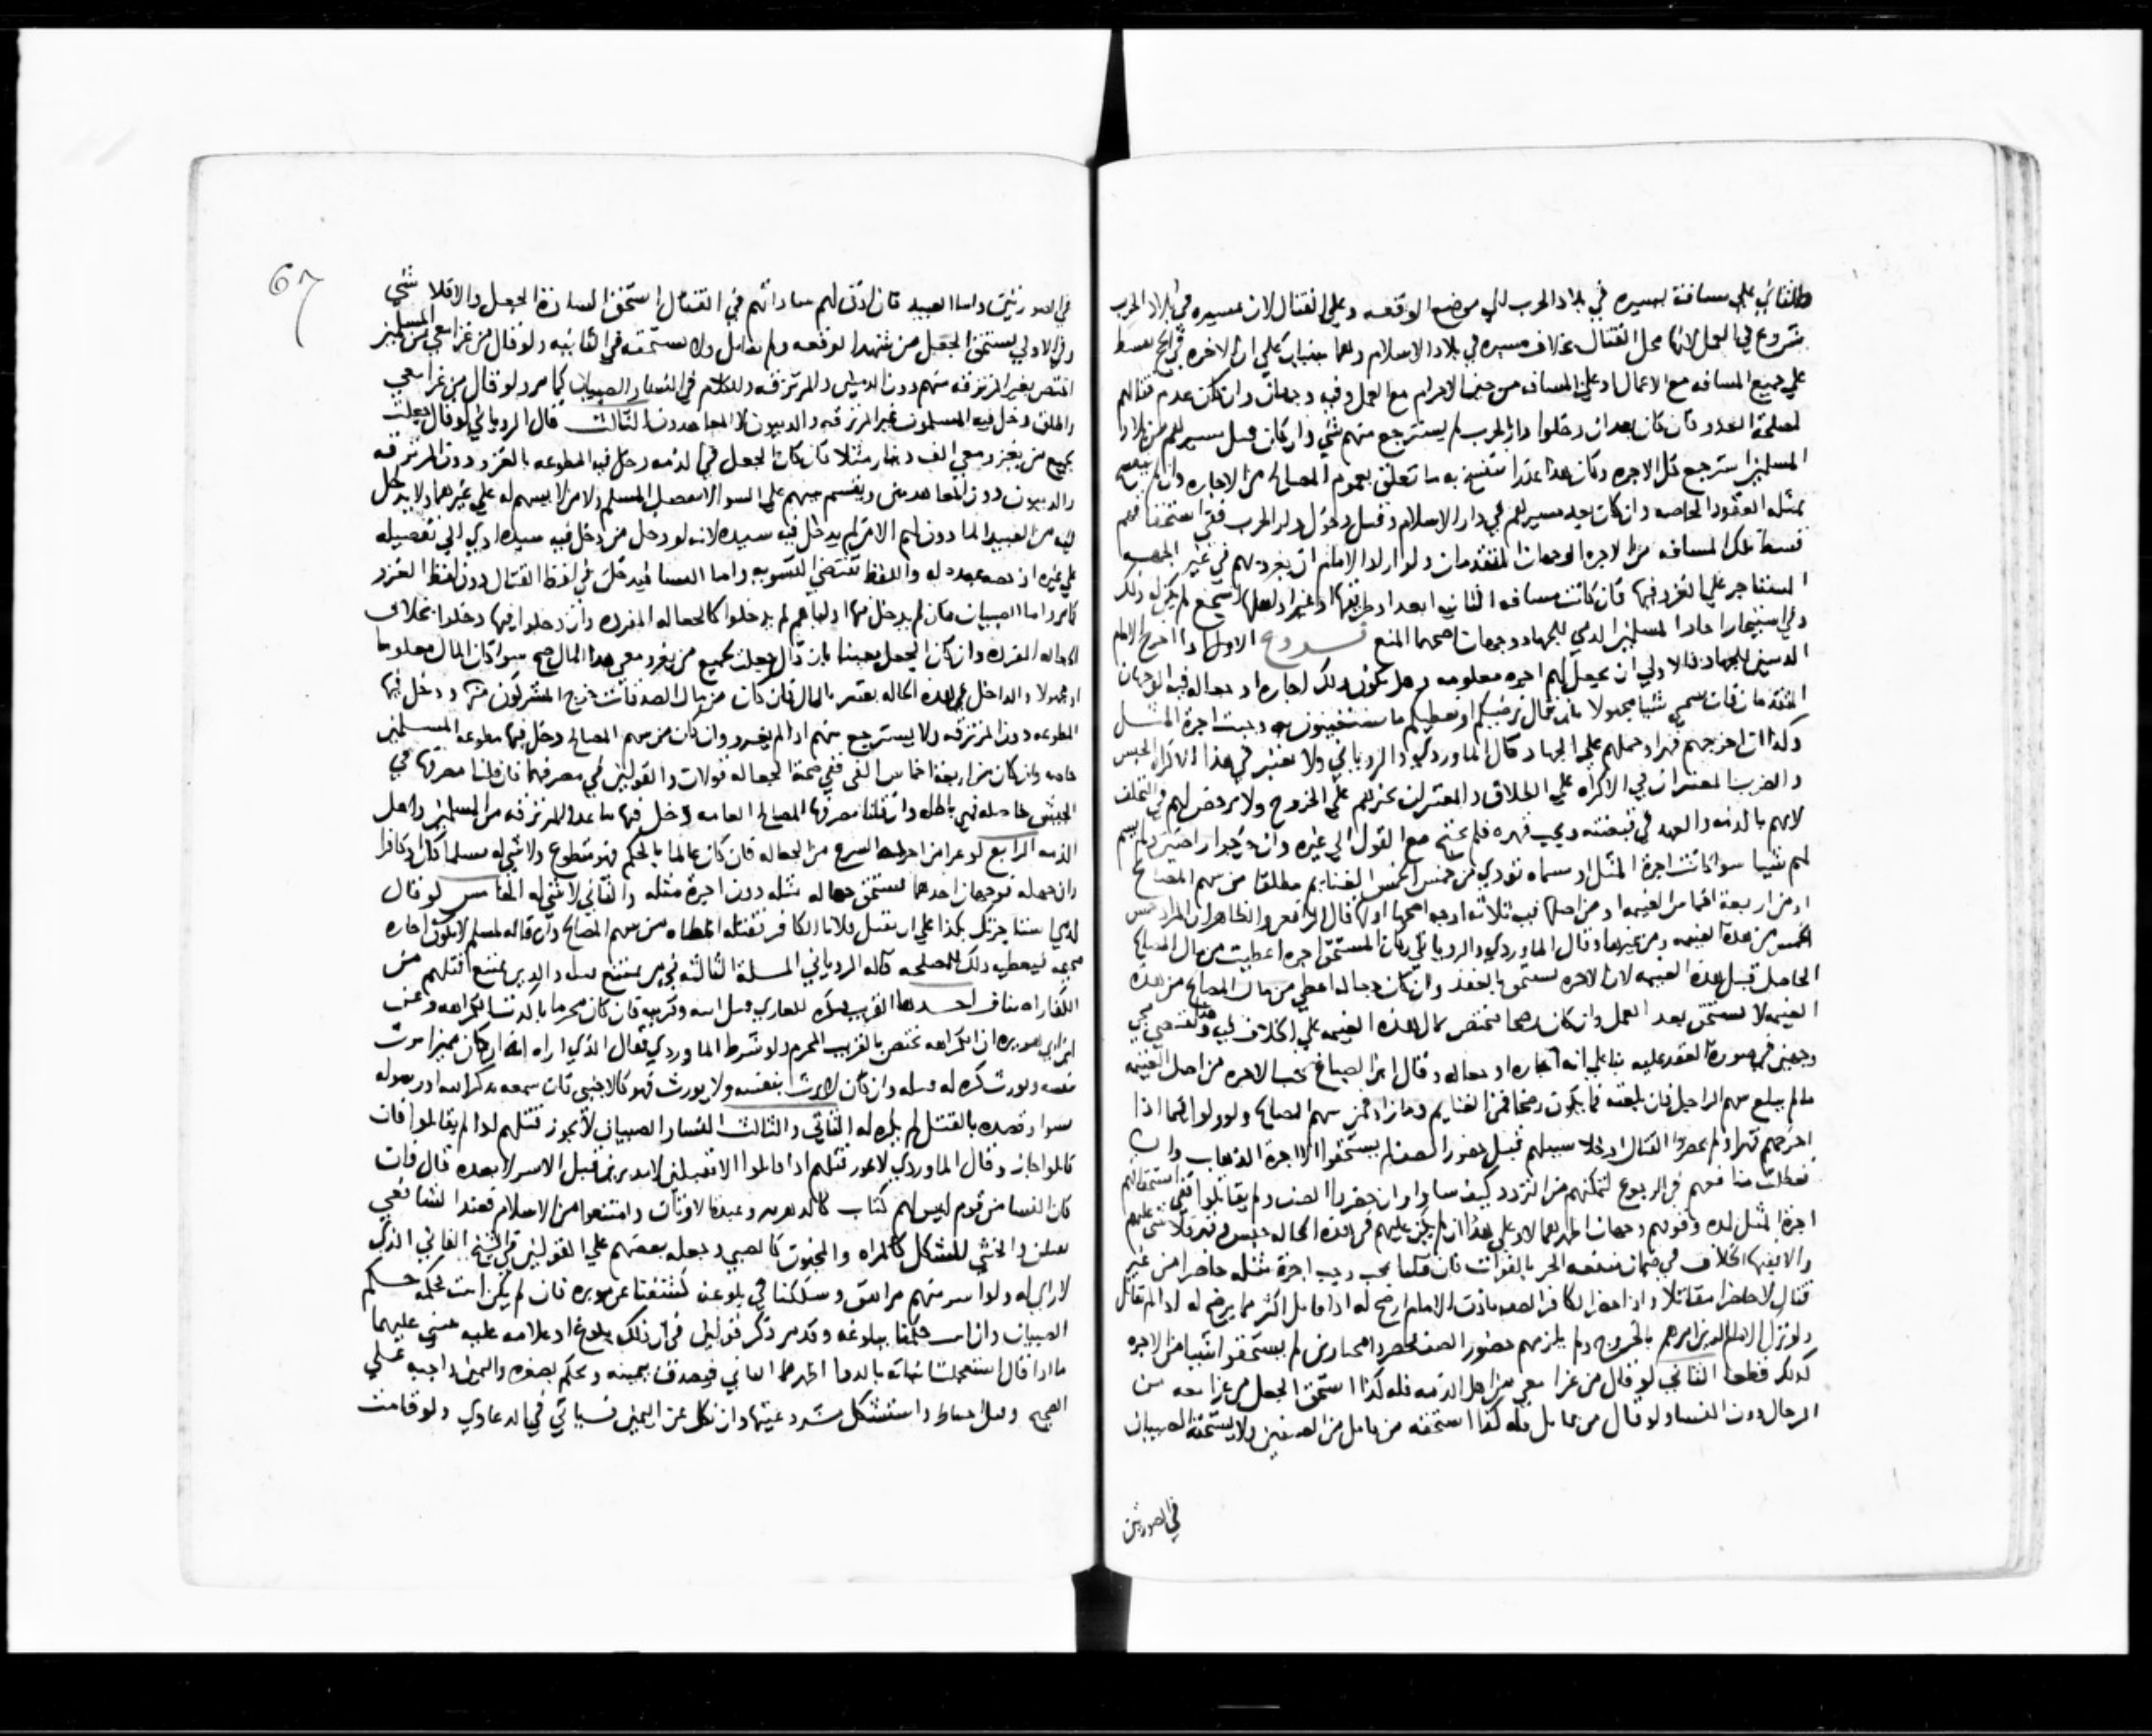 والثاني علي مسافة لمسيره في بلاد الحرب الي موضع الوقعه وعلي القتال لان مسيره في بلاد الحرب
شروع في العمل لانها محل القتال بخلاف مسيره في بلاد الاسلام وهما مبنيان علي ان الاجره في الحج تقسط
علي جميع المسافه مع الاعمال او علي المسافه من حين الاحرام مع العمل وفيه وجهان وان كان عدم قتالهم
لمصلحة العدو فان كان بعد ان دخلوا دار الحرب لم يسترجع منهم شي وان كان قبل مسيرهم من بلاد
المسلمين استرجع كل الاجره وكان هذا عذرا تنفسخ به ما تعلق بعموم المصالح من الاجاره وان لم ينفسخ
بمثله العقود الخاصه وان كان بعد مسيرهم في دار الاسلام وقبل دخول دار الحرب ففي استحقاقهم
قسط تلك المسافه من الاجره الوجهان المتقدمان ولو اراد الامام ان يغزو بهم في غير الجهه
المستاجر علي الغزو فيها فان كانت مسافه الثانيه ابعد او طريقها اوعر او اهلها اشجع لم يكن له ذلك
وفي استيجار احاد المسلمين الذمي للجهاد وجهان اصحهما المنع فروع الاول اذا اخرج الامام
الذميين للجهاد فالاولي ان يجعل لهم اجره معلومه وهل يكون ذلك اجاره او جعاله فيه الوجهان
المتقدمان فان سمي شيا مجهولا بان قال نرضيكم او نعطيكم ما تستعينون به وجبت اجرة المثل
وكذا ان اخرجهم قهرا وحملهم علي الجهاد قال الماوردي والروياني ولا نعتبر في هذا الاكراه الحبس
والضرب المعتبران في الاكراه علي الطلاق والمعتبر ان يجبرهم علي الخروج ولا يرخص لهم في التخلف
لانهم بالذمه والعهد في قبضته وتحت قهره فلم يحتج مع القول الي غيره وان خرجوا راضين ولم يسم
لهم شيا سوا كانت اجرة المثل او مسماه تودي من خمس الخمس الغنايم مطلقا من سهم المصالح
او من اربعة اخماس الغنيمه او من اصلها فيه ثلاثه اوجه اصحها اولها قال الرافعي والظاهر ان المراد خمس
الخمس من هذه الغنيمه ومن غيرها وقال الماوردي والروياني ان كان المستحق اجره اعطيت من مال المصالح
الحاصل قبل هذه الغنيمه لان الاجره تستحق بالعقد وان كان جعاله اعطي من مال المصالح من هذه
الغنيمه لا تستحق بعد العمل وان كان رضخا فتختص بمال هذه الغنيمه علي الخلاف فيه
وجهين في صورة العقد عليه بنا علي انه اجاره او جعاله وقال ابن الصباغ تجب الاجره من اصل الغنيمه
ما لم يبلغ سهم الراجل فان بلغته فما يكون رضخا فمن الغنايم وما زاد فمن سهم المصالح ولو
اخرجهم قهرا ولم يحضروا القتال او خلا سبيلهم قبل حضور الصف لم يستحقوا الا اجرة الذهاب وان
تعطلت منافعهم في الرجوع لتمكنهم من التردد كيف شاوا وان حضروا الصف ولم يقاتلوا ففي استحقاقهم
اجرة المثل لمدة وقوفهم وجهان اظهرهما لا وعلي هذا ان لم يكن عليهم في هذه الحاله حبس وقهر فلا شي لهم
والا ففيه الخلاف في ضمان منفعه الحر بالفوات فان قلنا يجب وجب اجرة مثله حاضرا من غير
قتال لا حاضرا مقاتلا واذا حضر الكافر الصف باذن الامام ارضخ له اذا قاتل اكثر مما يرضخ له اذا لم يقاتل
ولو ترك الامام الذين امرهم بالخروج ولم يلزمهم حضور الصف فحضروا مختارين لم يستحقوا شيا من الاجره
لذلك قطعا الثاني لو قال من غزا معي من اهل الذمه فله كذا استحق الجعل من غزا معه من
الرجال دون النسا ولو قال من قاتل فله كذا استحقه من قاتل من الصنفين ولا يستحقه الصبيان
في الصورتين
67
في الصورتين واما العبيد فان اذن لهم ساداتهم في القتال استحق السادة الجعل والا فلا شي
وفي الاولي يستحق الجعل من شهد الوقعه ولم يقاتل ولا يستحقه في الثانيه ولو قال من غزا معي من المسلمين
اختص بغير المرتزقه منهم دون الذميين والمرتزقه والكلام في النسا والصبيان كما مر ولو قال من غزا معي
واطلق دخل فيه المسلمون غير المرتزقه والذميون لا المجاهدون الثالث قال الروياني لو قال جعلت
لجميع من يغزو معي الف دينار مثلا فان كان الجعل في الذمه دخل فيه المطوعه بالغزو دون المرتزقه
والذميون دون المعاهدين ويقسم بينهم علي السوا لا يفضل المسلم ولا من لا يسهم له علي غيرهما ولا يدخل
فيه من العبيد الا الماذون لهم الا من لم يدخل فيه سيده لانه لو دخل من دخل فيه سيده ادي الي تفضيله
علي غيره اذ حصه عبده له واللفظ يقتضي التسويه واما النسا فيدخلن في لفظ القتال دون لفظ الغزو
كما مر واما الصبيان فان لم يدخل فيها اولياهم لم يدخلوا كالجعاله المفرده وان دخلوا فيها دخلوا بخلاف
الجعاله المفرده وان كان الجعل معينا بان قال جعلت لجميع من يغزو معي هذا المال صح سوا كان المال معلوما
او مجهولا والداخل في هذه الحاله يعتبر بالمال فان كان من مال الصدقات خرج المشركون منها ودخل فيها
المطوعه دون المرتزقه ولا يسترجع منهم اذا لم يغزو وان كان من سهم المصالح دخل فيها مطوعه المسلمين
خاصه وان كان من اربعة اخماس الفي ففي صحة الجعاله قولان والقولين في مصرفها فان قلنا مصرفها في
الجيش خاصه فهي باطله وان قلنا مصرفها المصالح العامه دخل فيها ما عدا المرتزقه من المسلمين واهل
الذمه الرابع لو عرا من الجعاله فان كان عالما بالحكم فهو متطوع ولا شي له مسلما كان او كافرا
وان جهله فوجهان احدهما يستحق جعاله مثله دون اجرة مثله والثاني لا شي له الخامس لو قال
لذمي استاجرتك بكذا علي ان تقتل فلانا الكافر فقتله اعطاه من سهم المصالح وان قاله لمسلم لا تكون اجاره
صحيحه فيعطيه ذلك للمصلحه قاله الروياني المسلة الثالثه فيمن يمتنع قتله والذين يمتنع قتلهم من
الكفار اصناف احدها القريب يكره للغازي قتل ابيه وقريبه فان كان محرما تاكدت الكراهه وعن
ابن ابي هريره ان الكراهه تختص بالقريب المحرم ولو شرط الماوردي فقال الذي اراه انه ان كان ممن يرث
نفسه ويورث كره له قتله وان كان لا يرث بنفسه ولا يورث فهو كالاجنبي فان سمعه يذكر الله او رسوله
بسوا وقصده بالقتل لم يكره له الثاني والثالث النسا والصبيان لا يجوز قتلهم اذا لم يقاتلوا فان
قاتلوا جاز وقال الماوردي لا يجوز قتلهم اذا قاتلوا الا مقبلين لا مدبرين قبل الاسر لا بعده قال فان
كان النسا من قوم ليس لهم كتاب كالدهريه وعبدة الاوثان وامتنعوا من الاسلام فعند الشافعي
يقتلن والخنثي المشكل كالمراه والمجنون كالصبي وجعله بعضهم علي القولين في الشيخ الفاني الذي
لا راي له ولو اسر منهم مراهق وشككنا في بلوغه كشفنا عن موتزره فان لم يكن انبت فحكمه حكم
الصبيان وان انبت حكمنا ببلوغه وقد مر ذكر قولين في ان ذلك بلوغ او علامه عليه مبني عليهما
ما اذا قال استعجلت انباته بالدوا اظهرهما الثاني فيصدق بيمينه ويحكم بصغره واليمين واجبه علي
الصحيح وقيل احتياط واستشكل مشروعيتها وان نكل عن اليمين فسياتي في الدعاوي ولو قامت